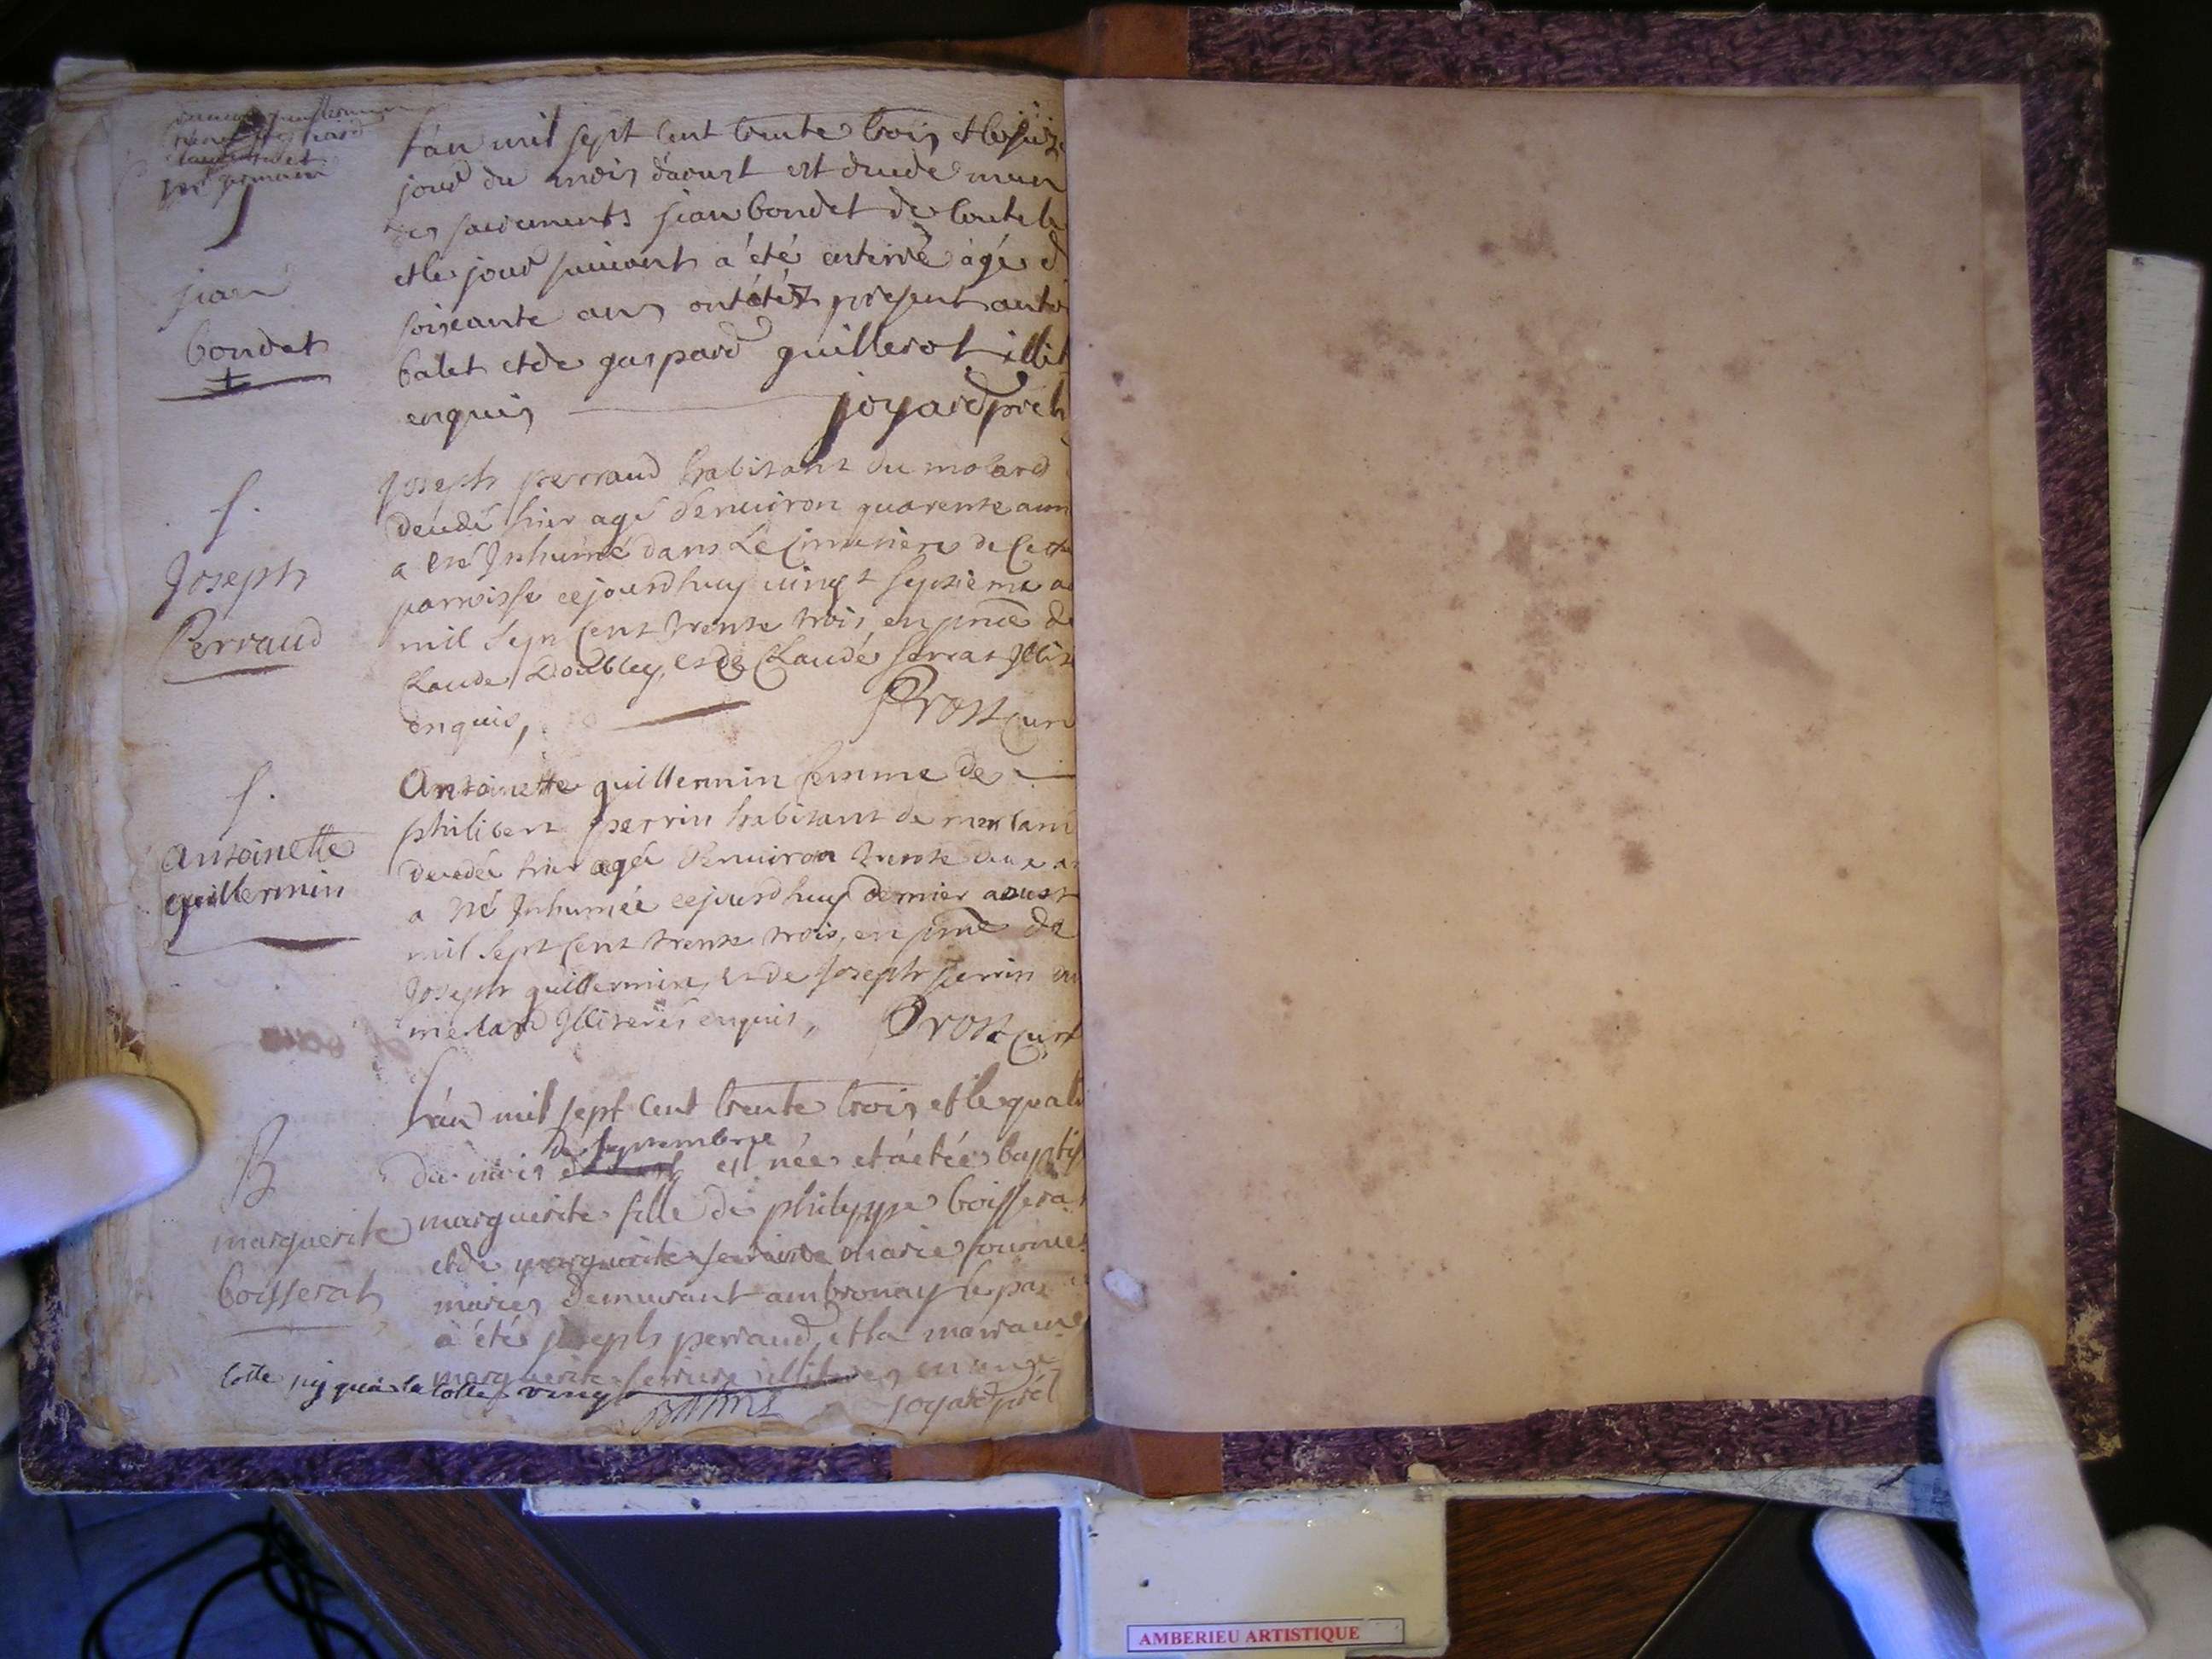 S
jean
bondet
l'an mil sept cent trente trois et le
jour du mois d'aoust est decede muni
des sacrements jean bondet de
et le jour suivant a été enterré agé d
soixante ans ont étéz present
balet et de gaspard guillerot illit
enquis joyard pret
S.
Joseph
Perraud
Joseph perraud habitant du molard
decedé hier agé d'environ quarente ann
a eté Inhumé dans Le Cimetiere de Cette
parroisse cejourdhuy vingt septieme ao
mil sept cent trente trois en pnce de
Claude Doubley, et de Claude serrat Illit
enquis, Prost curé
S.
antoinette
guillermin
Antoinette guillermin femme de
philibert perrin habitant de
decedée hier agée d'environ trente deux an
a eté Inhumée cejourdhuy dernier aoust
mil sept cent trente trois, en pnce de
Joseph guillermin, et de Joseph perrin du
Illiterés enquis, Prost curé
B
marguerite
boisserat
L'an mil sept cent trente trois et le quat
de septembre
du mois d'aoust est née et a étée baptis
marguerite fille de philippe boisserat
et de marguerite marie fournier
mariez demeurant ambronay le par
a été joseph perraud, et la marraine
marguerite illiteres enquis
Cotte jusqu'à la cotte vingt joyard pret